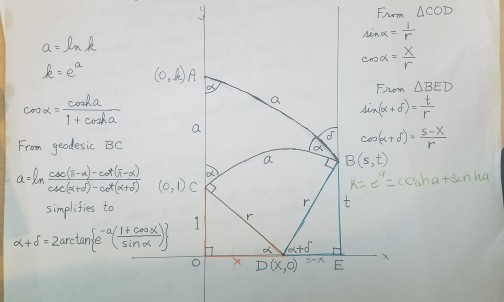 a = ln k
k = e^a
cosα = cosha / 1 + cosha
From geodesic BC
a = ln csc(π-α) - cot(π-α) / csc(α+δ) - cot(α+δ)
simplifies to
α+δ = 2arctan{e^-a (1 + cosα / sinα)}
y
(0, k) A
α
a
a
δ
α
a
α
(0, 1) C
B (s, t)
1
r
r
t
α
α+δ
O
x
D (x, 0)
s-x
E
x
From △COD
sinα = 1/r
cosα = x/r
From △BED
sin(α+δ) = t/r
cos(α+δ) = s-x / r
K = e^a = cosha + sinha